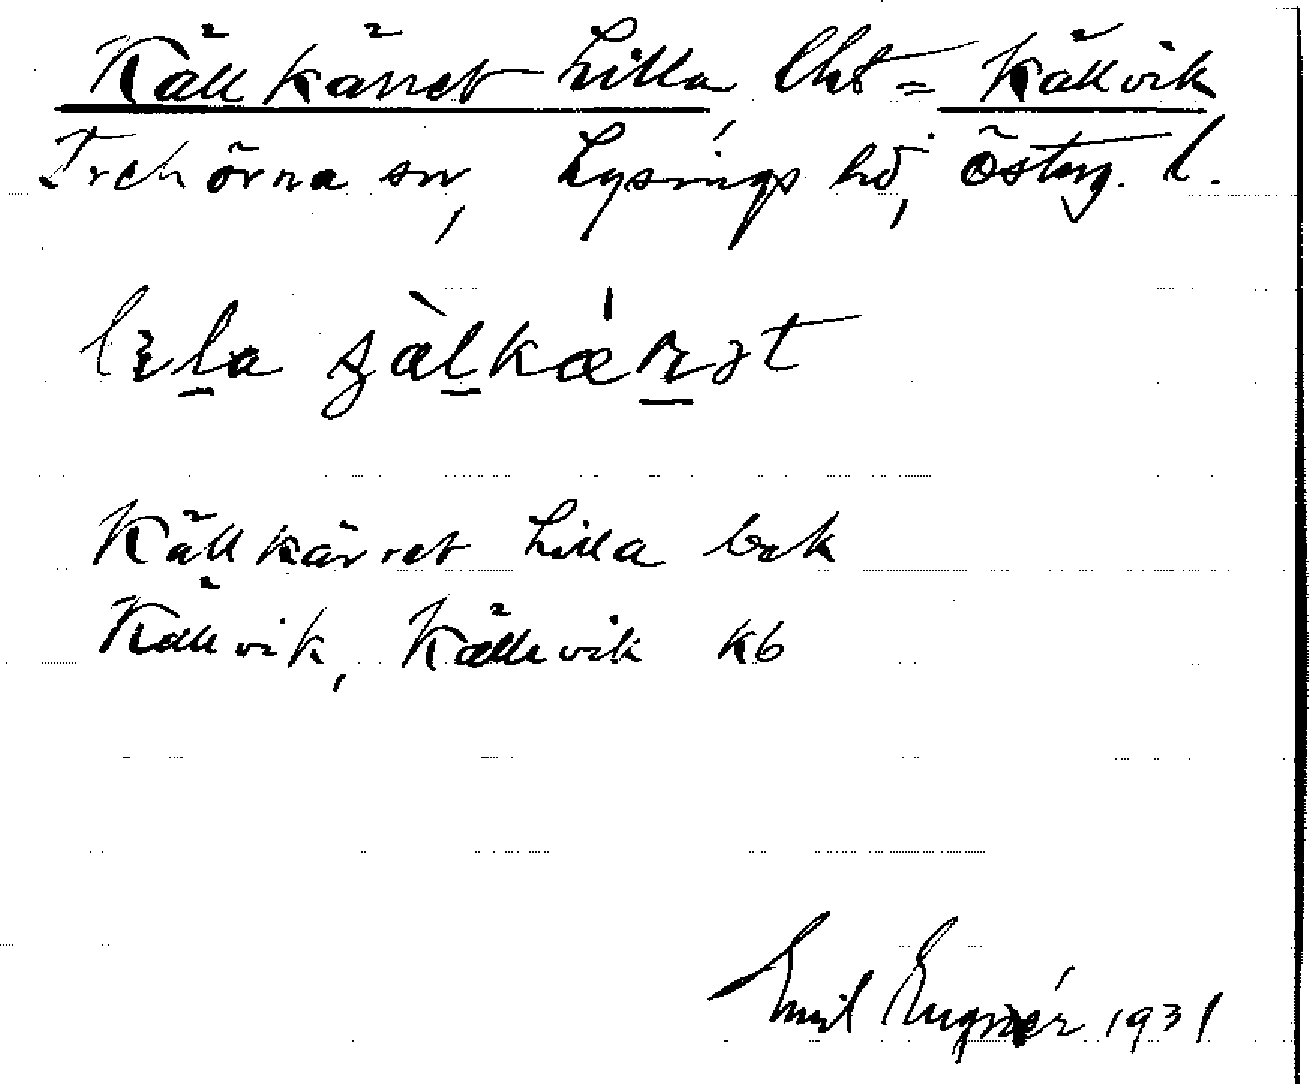 Källkärret Lilla, lht = Källvik
Trehörna sn, Lysings hd, Österg. l.
Källkärret Lilla bek
Källvik, Källvik kb
Emil Engnér 1931